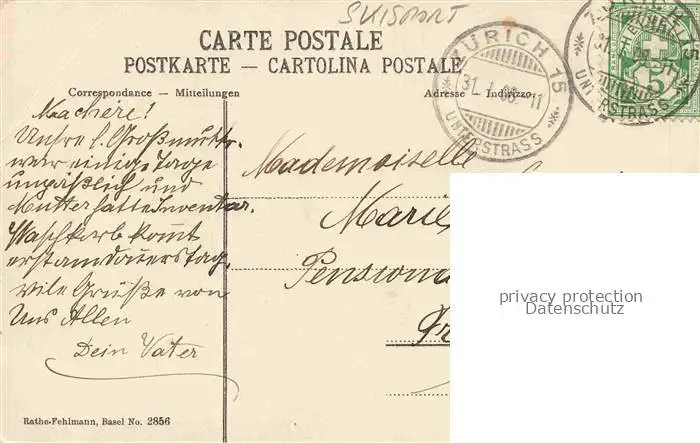 SKISPORT
CARTE POSTALE
POSTKARTE — CARTOLINA POSTALE
Correspondance — Mitteilungen
Adresse — Indirizzo
ZÜRICH 15
31. I. 08. - 11
UNTERSTRASS
15
UNTERSTRASS
5
Ma chère!
Unsre l. Großmutter
war einige Tage
unpäßlich und
Mutter hatte Inventar.
Waschkorb kommt
erst am Donnerstag.
Viele Grüße von
Uns Allen
Dein Vater
Mademoiselle
Marie
Pensionna
Fr
privacy protection
Datenschutz
Rathe-Fehlmann, Basel No. 2856